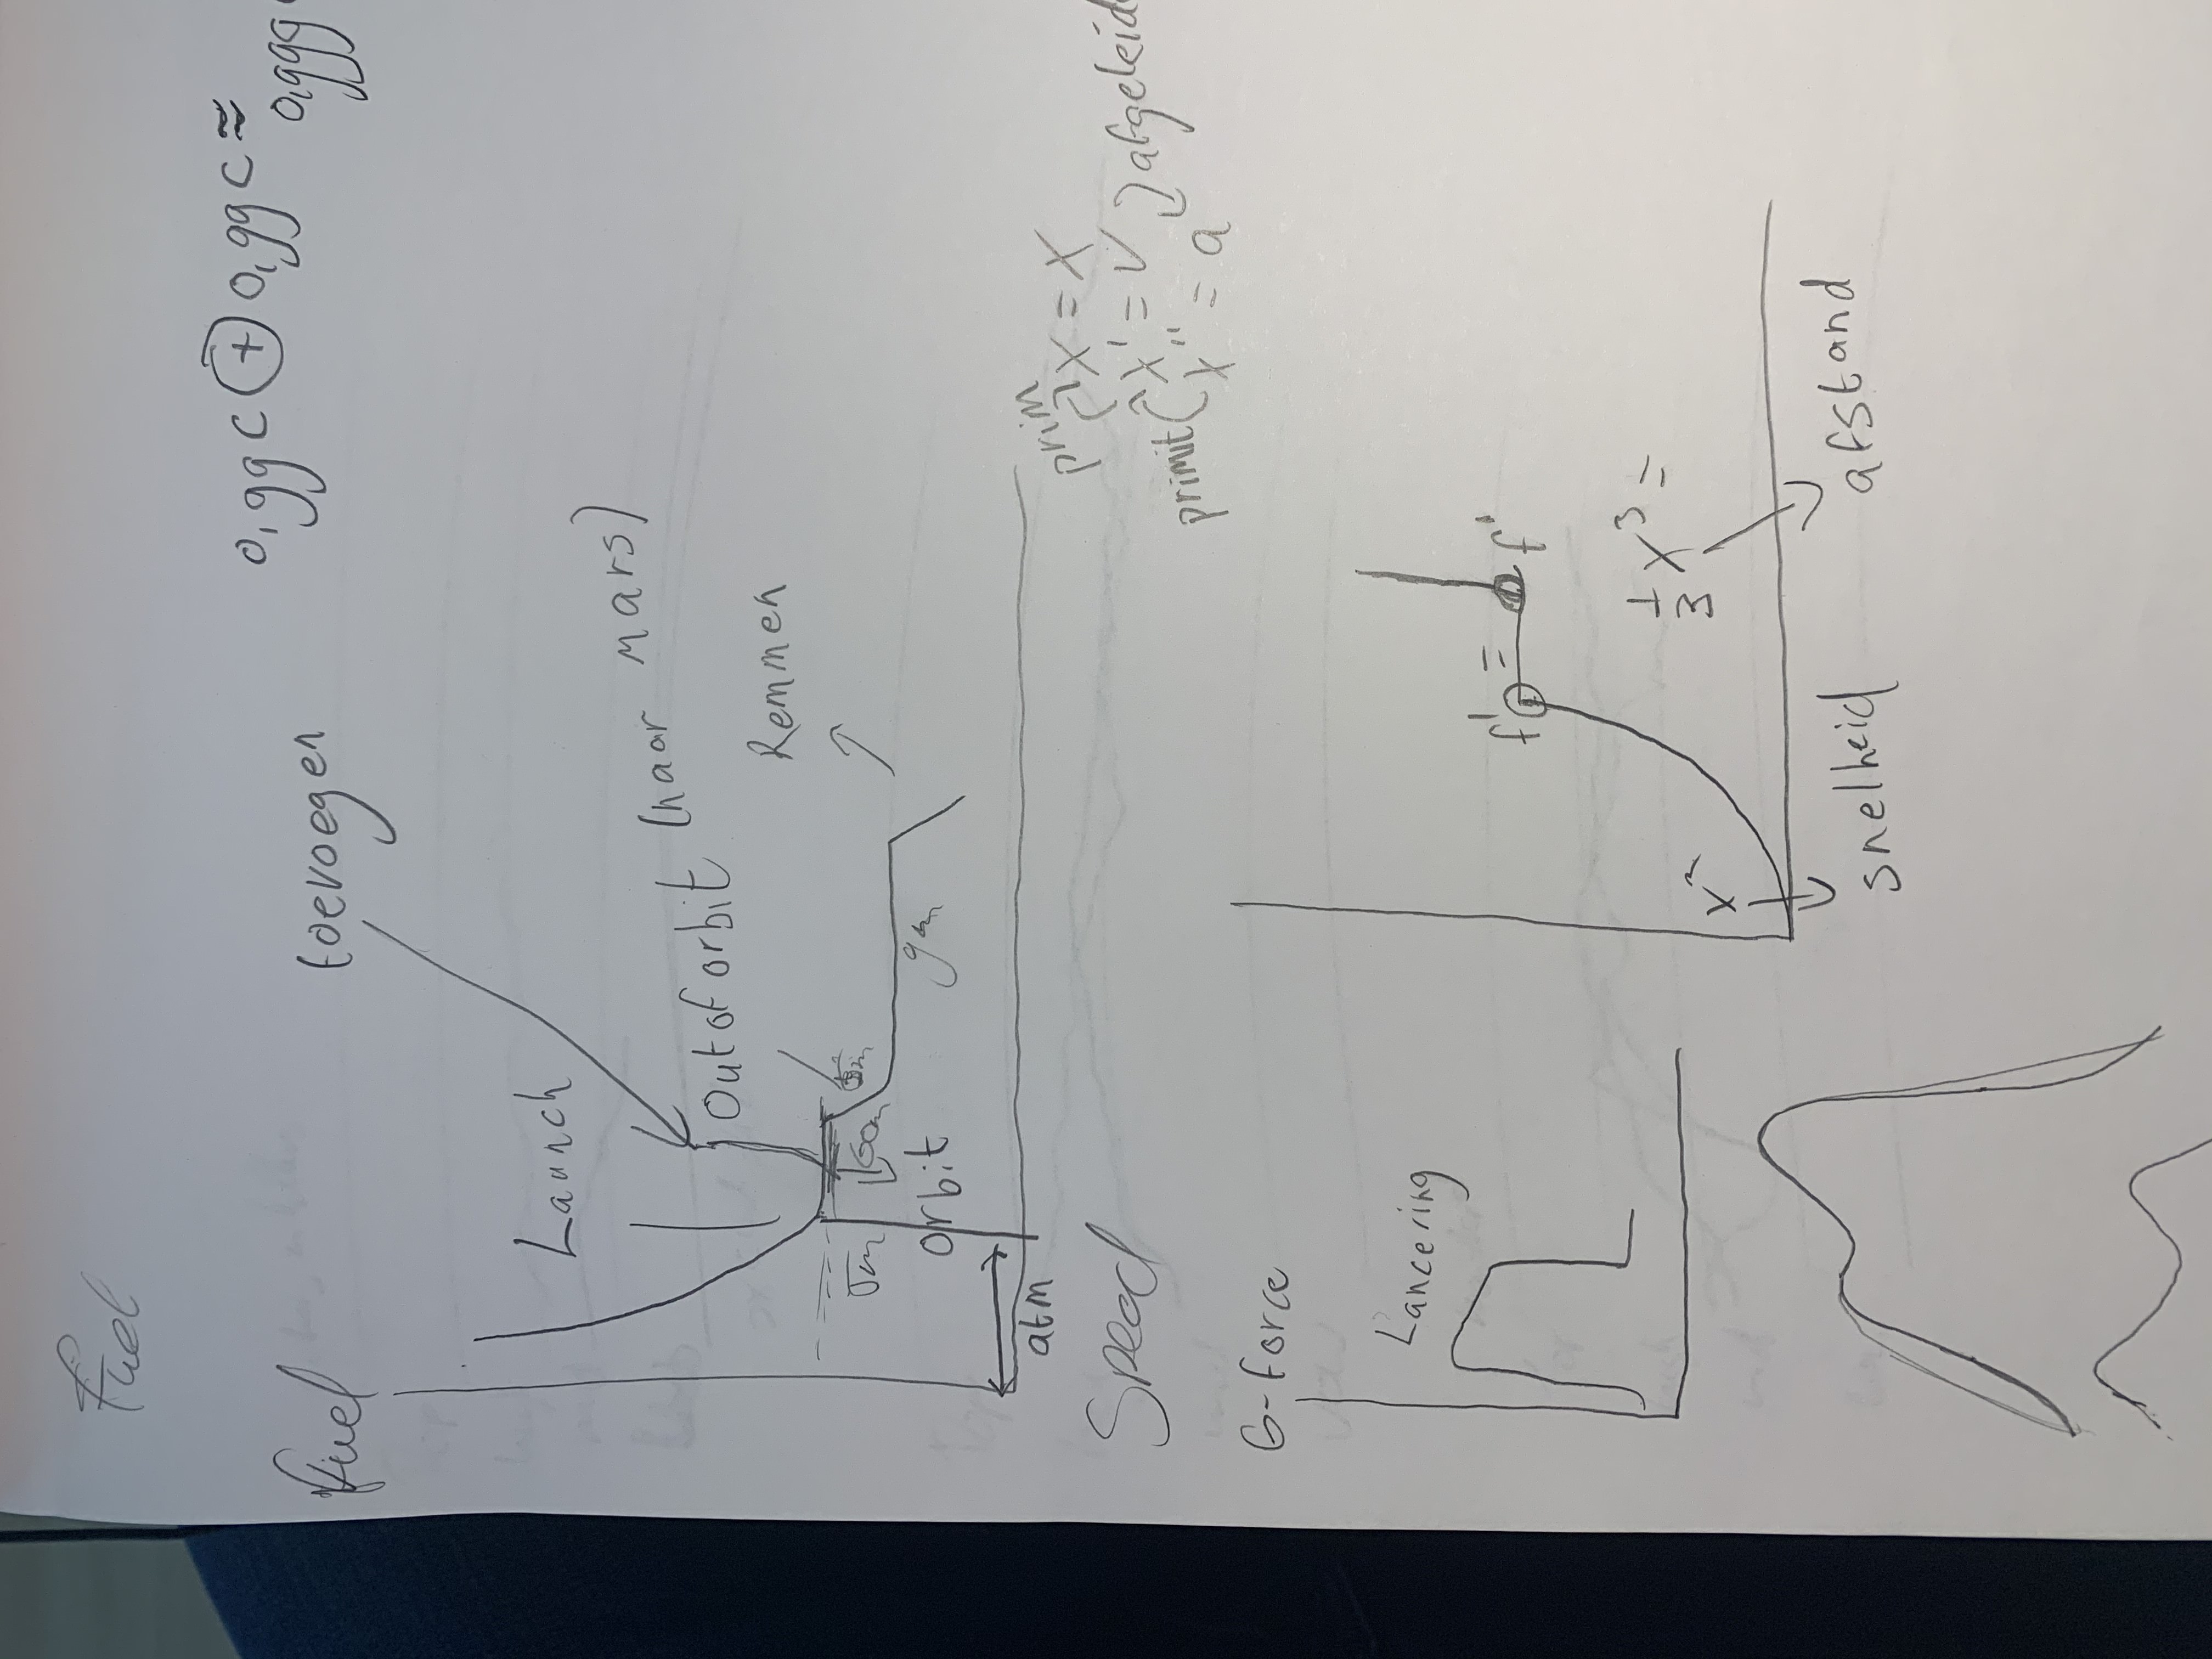 Fuel
0,99 c ⊕ 0,99 c ≈
0,999
Fuel
toevoegen
Launch
Out of orbit (naar Mars)
Remmen
5m
60m
5m
9m
orbit
atm
prim
x = x
Speed
x' = v
afgeleid
primit
x'' = a
G-force
Lancering
f' = f'
1/3 x³ =
x²
snelheid
afstand